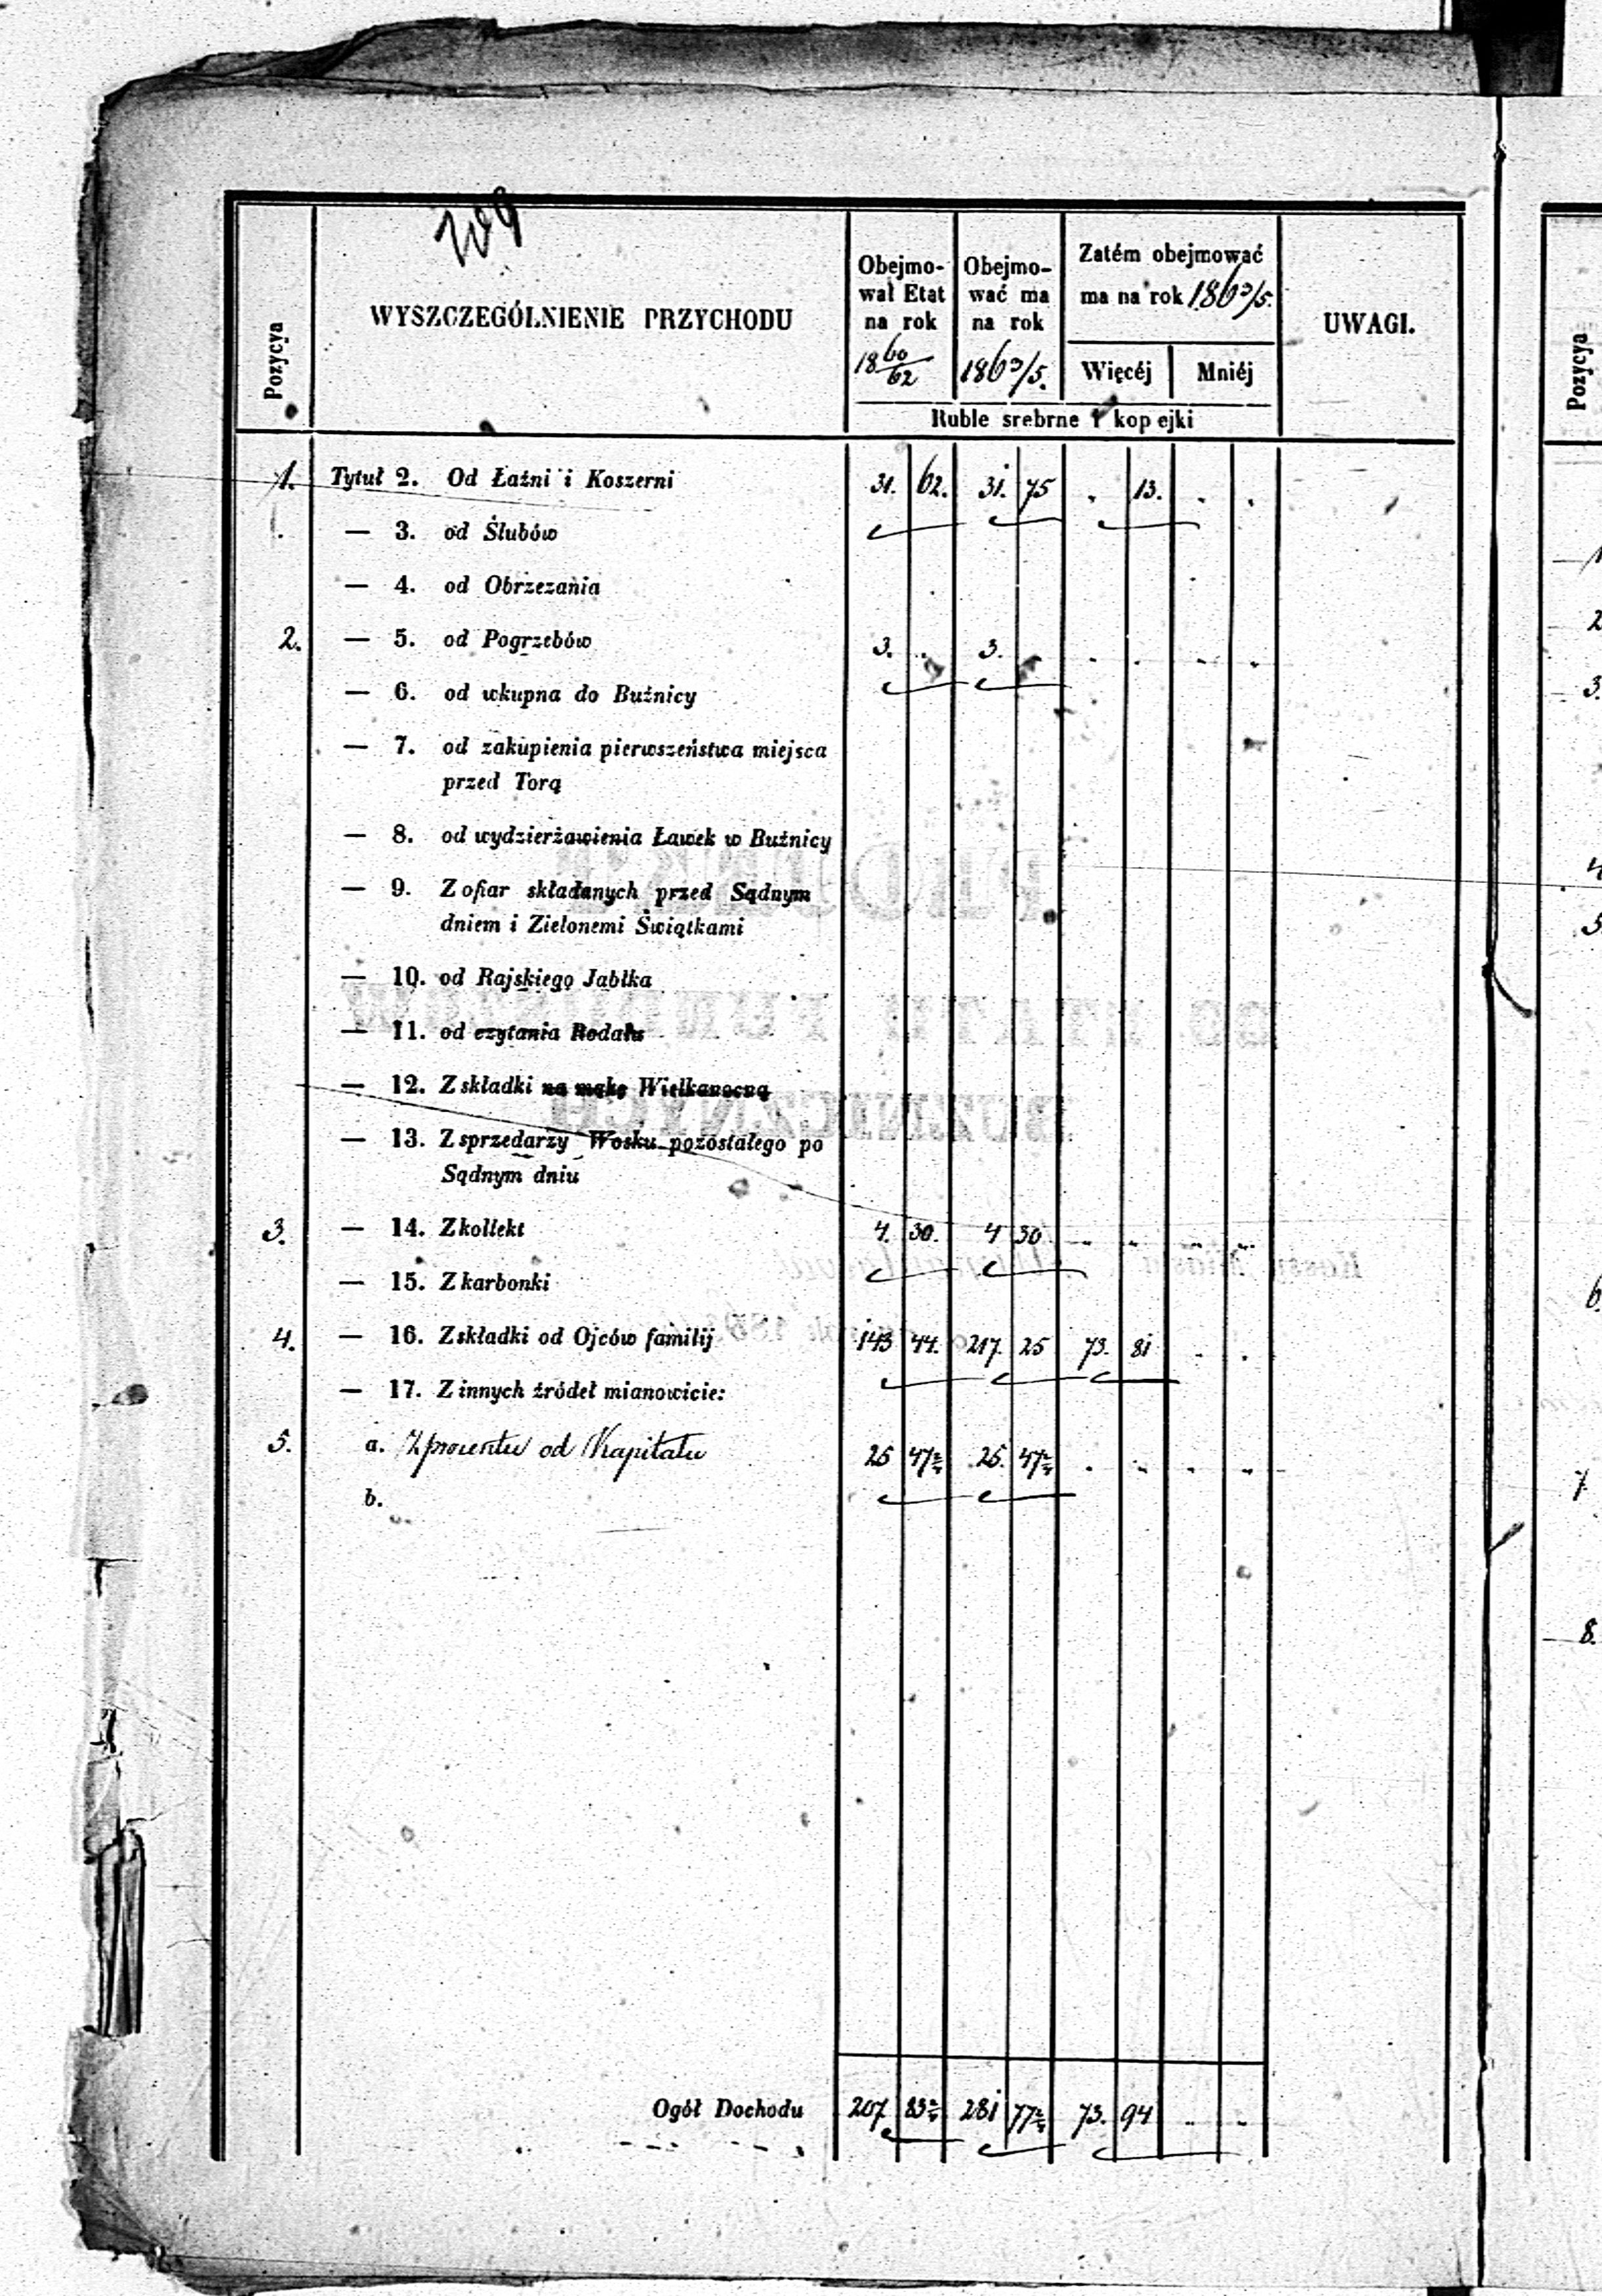 209
Pozycya
WYSZCZEGÓLNIENIE PRZYCHODU
Obejmo-
wał Etat
na rok
1860/62
Obejmo-
wać ma
na rok
1863/5.
Zatém obejmować
ma na rok 1863/5.
Więcéj Mniéj
UWAGI.
Ruble srebrne i kopejki
1. Tytuł 2. Od Łaźni i Koszerni 31. 62. 31. 75 . 13. . .
— 3. od Ślubów
— 4. od Obrzezania
2. — 5. od Pogrzebów 3. .. 3. . . . . .
— 6. od wkupna do Buźnicy
— 7. od zakupienia pierwszeństwa miejsca
przed Torą
— 8. od wydzierżawienia Ławek w Buźnicy
— 9. Z ofiar składanych przed Sądnym
dniem i Zielonemi Świątkami
— 10. od Rajskiego Jabłka
— 11. od czytania Rodału
— 12. Z składki na mąkę Wielkanocną
— 13. Z sprzedarzy Wosku pozostałego po
Sądnym dniu
3. — 14. Z kollekt 4. 30. 4 30 .. .. .. ..
— 15. Z karbonki
4. — 16. Z składki od Ojców familij 143 44. 217. 25 73. 81 . .
— 17. Z innych źródeł mianowicie:
5. a. Z procentu od Kapitału 25 47 25. 47 . . . .
b.
Ogół Dochodu 207 83 281 77 73. 94 .. ..
Pozycya
1
2
3.
4
5
6.
7
8.